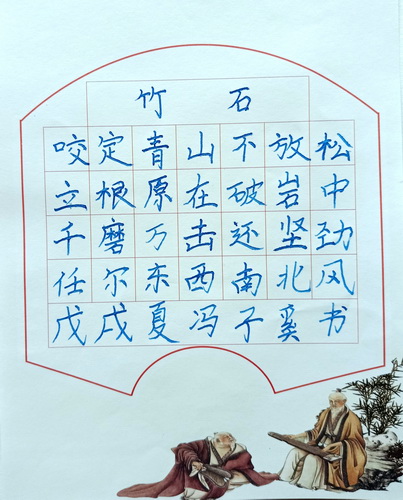 竹石
咬定青山不放松
立根原在破岩中
千磨万击还坚劲
任尔东西南北风
戊戌夏冯子奚书